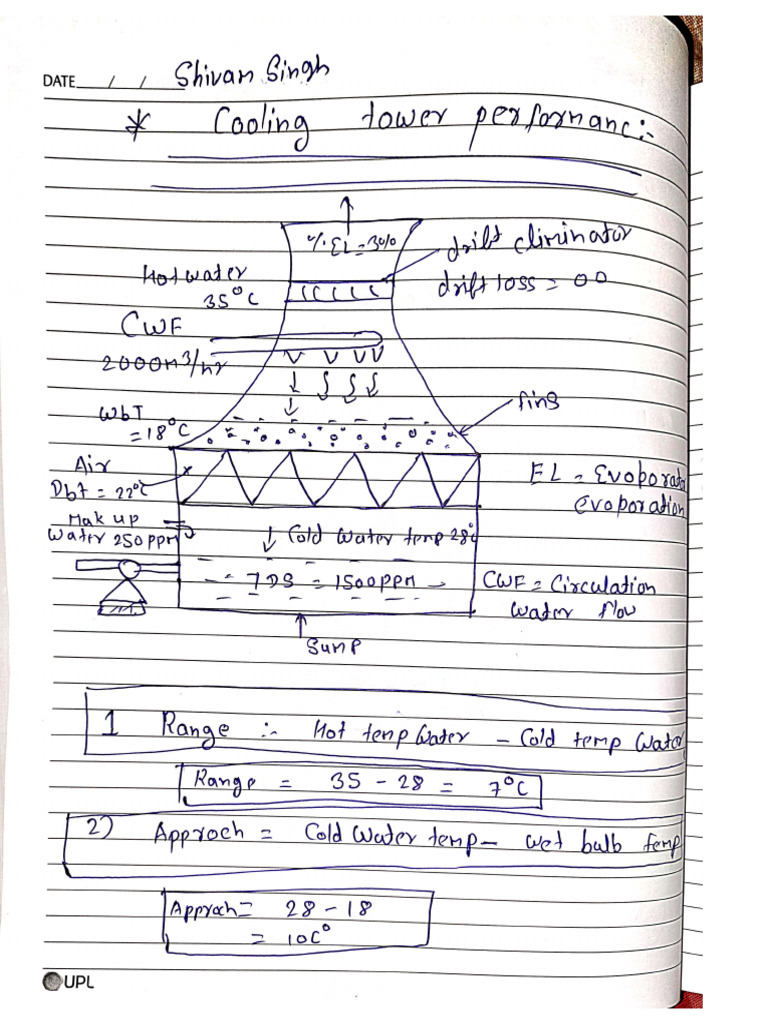 DATE / / Shivam Singh
* Cooling tower performanc :-
% EL = 30%
drift eliminator
Hot water
35°C
drift loss = 00
CWF
2000m3/hr
WbT
= 18°C
fins
Air
Dbt = 22°C
EL = Evoporat
evoporation
Mak up
Water 250 ppm
Cold Water temp 28°
TDS = 1500ppm
CWF = Circulation
Water flow
Sump
1 Range :- Hot temp Water - Cold temp Water
Range = 35 - 28 = 7°C
2) Approch = Cold Water temp - wet bulb temp
Approch = 28 - 18
= 10C°
UPL